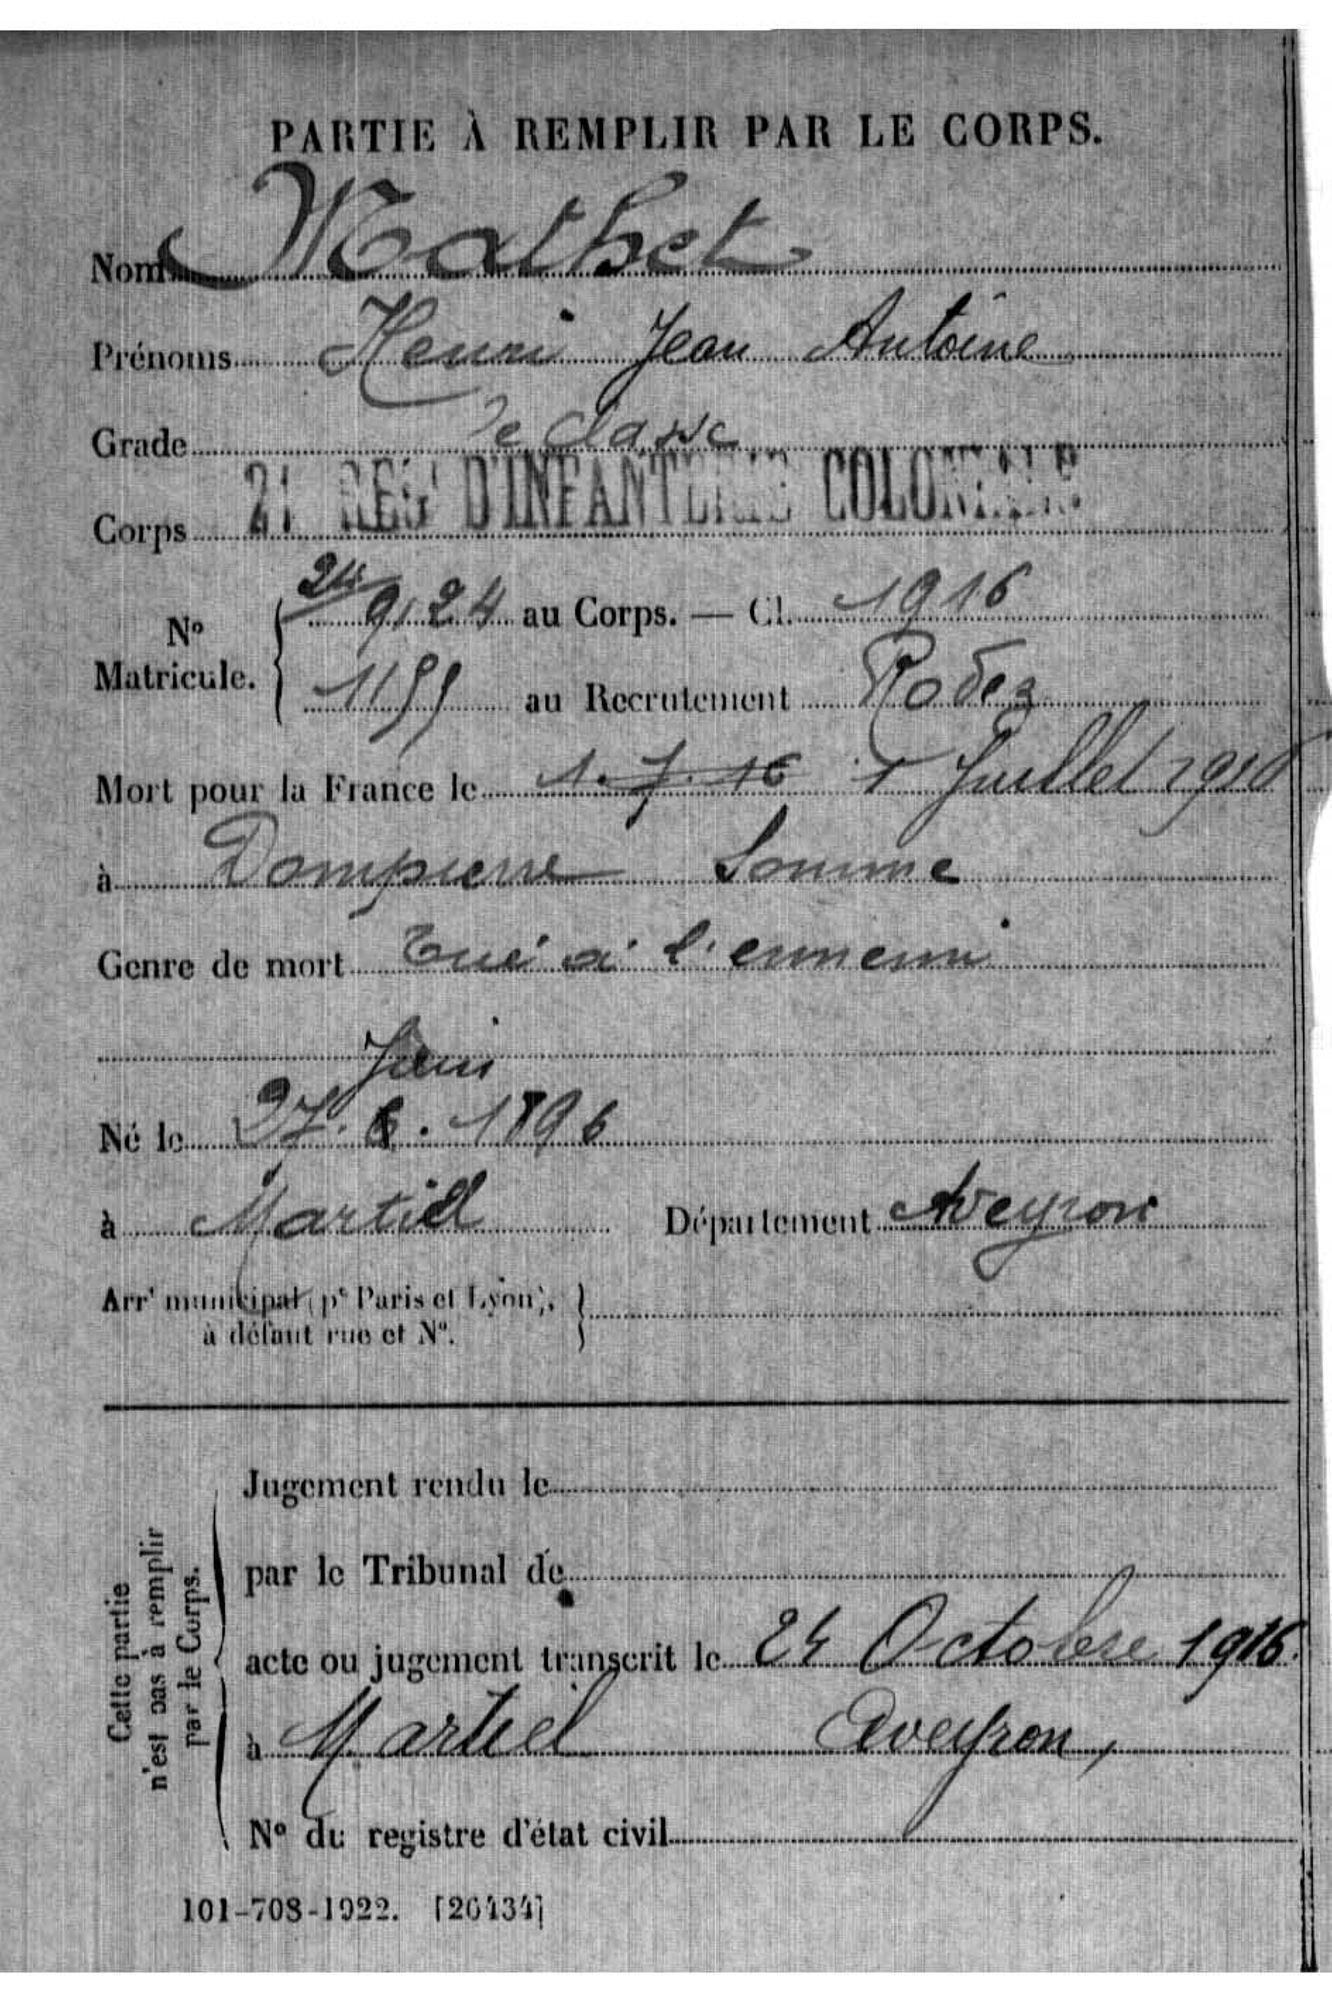 PARTIE À REMPLIR PAR LE CORPS.
Nom Mathet
Prénoms Henri Jean Antoine
Grade 2e classe
Corps 21 REG D'INFANTERIE COLONIALE
24
9124 au Corps. — Cl. 1916
N°
Matricule.
1155 au Recrutement Rodez
Mort pour la France le 1.7.16 1 Juillet 1916
à Dompierre Somme
Genre de mort Tué à l'ennemi
Juin
Né le 27.6.1896
à Martiel Département Aveyron
Arrt municipal (pr Paris et Lyon),
à défaut rue et N°.
Jugement rendu le
par le Tribunal de
acte ou jugement transcrit le 24 Octobre 1916.
à Martiel Aveyron,
N° du registre d'état civil
Cette partie
n'est pas à remplir
par le Corps.
101-708-1922. [26434]